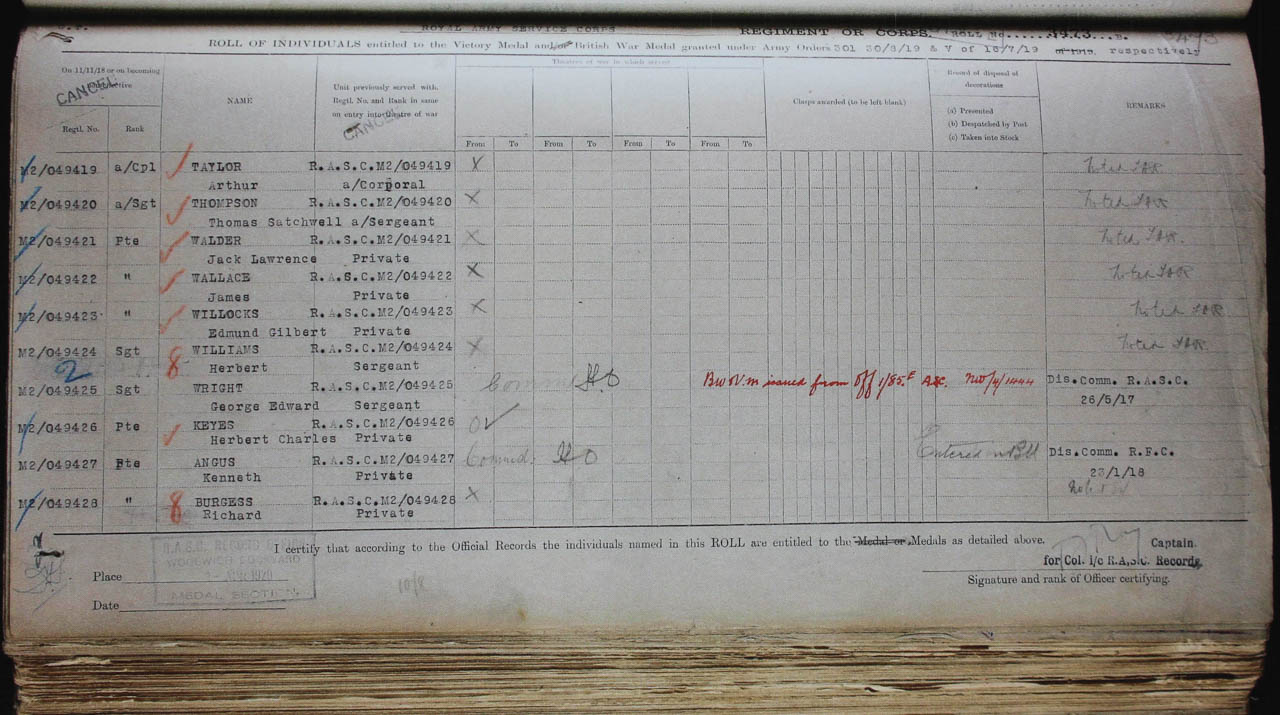 ROYAL ARMY SERVICE CORPS REGIMENT OR CORPS. ROLL NO.
ROLL OF INDIVIDUALS entitled to the Victory Medal and/or British War Medal granted under Army Orders 301 30/8/19 & V of 18/7/19 of 1919, respectively
Theatres of war in which served
On 11/11/18 or on becoming
CANCEL
Regtl. No. Rank
NAME
Unit previously served with.
Regtl. No. and Rank in same
on entry into theatre of war
CANCEL
From To From To From To From To
Clasps awarded (to be left blank)
Record of disposal of
decorations
(a) Presented
(b) Despatched by Post
(c) Taken into Stock
REMARKS
M2/049419 a/Cpl TAYLOR R.A.S.C.M2/049419 X Noted IAR
Arthur a/Corporal
M2/049420 a/Sgt THOMPSON R.A.S.C.M2/049420 X Noted IAR
Thomas Satchwell a/Sergeant
M2/049421 Pte WALDER R.A.S.C.M2/049421 X Noted IAR.
Jack Lawrence Private
M2/049422 " WALLACE R.A.S.C.M2/049422 X Noted IAR
James Private
M2/049423 " WILLOCKS R.A.S.C.M2/049423 X Noted IAR
Edmund Gilbert Private
M2/049424 Sgt 8 WILLIAMS R.A.S.C.M2/049424 X Noted IAR.
2 Herbert Sergeant
M2/049425 Sgt WRIGHT R.A.S.C.M2/049425 HO BWVM issued from Off 1/85 Dis.Comm. R.A.S.C.
George Edward Sergeant 26/5/17
M2/049426 Pte KEYES R.A.S.C.M2/049426
Herbert Charles Private
M2/049427 Pte ANGUS R.A.S.C.M2/049427 Commd. HO Entered Dis.Comm. R.F.C.
Kenneth Private 23/1/18
M2/049428 " 8 BURGESS R.A.S.C.M2/049428 X
Richard Private
I certify that according to the Official Records the individuals named in this ROLL are entitled to the Medal or Medals as detailed above.
Captain.
for Col. i/c R.A.S.C. Records.
Signature and rank of Officer certifying.
WOOLWICH DOCKYARD
1920
MEDAL SECTION
Place
Date
10/8